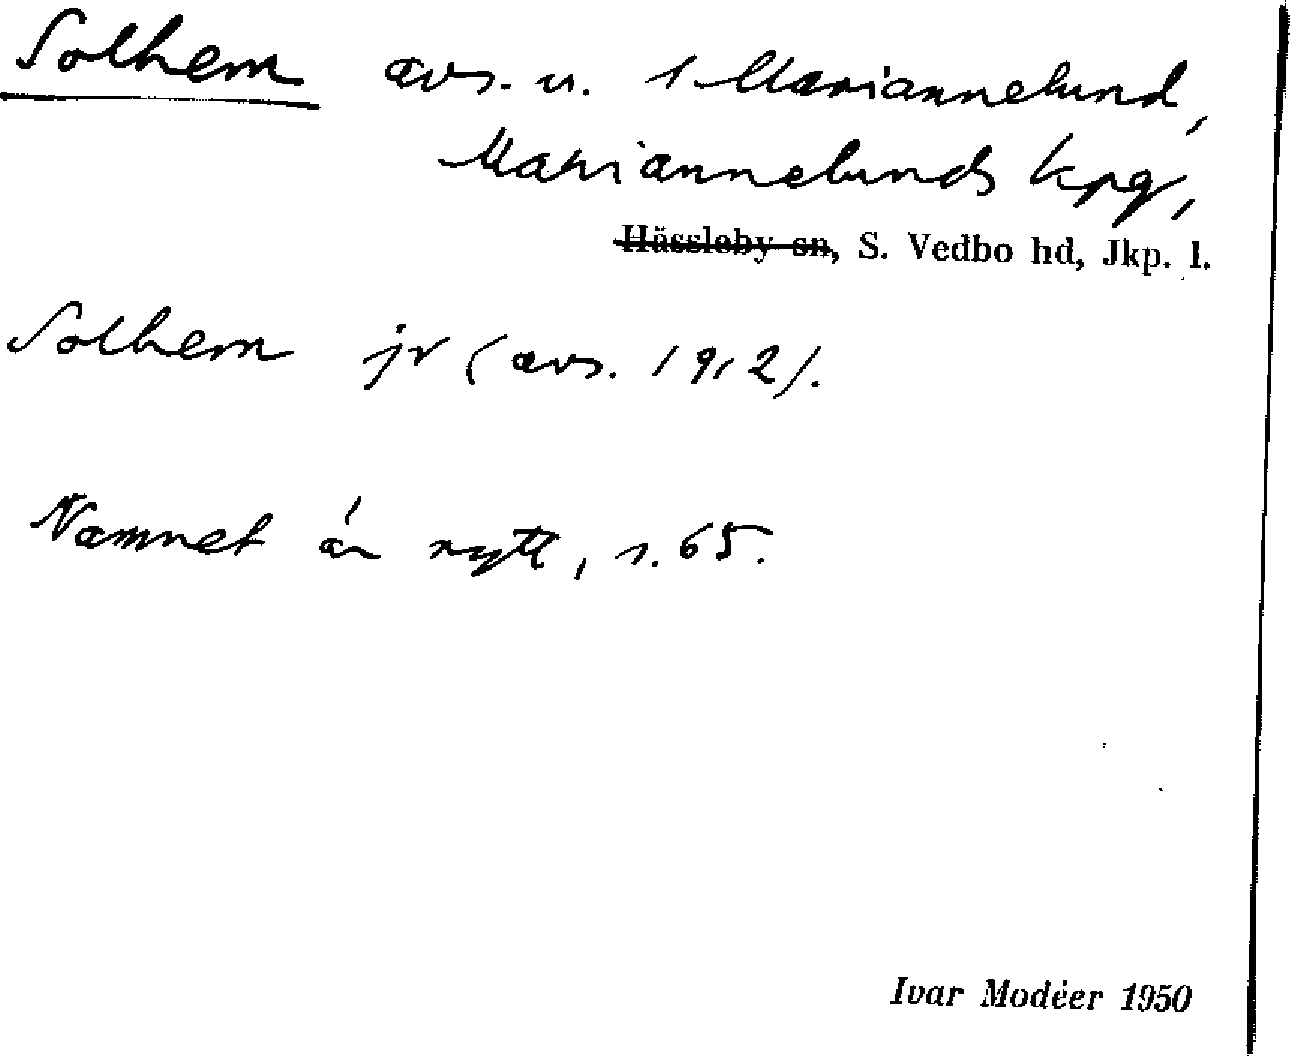 Solhem avs. u. 1 Mariannelund,
Mariannelunds kpg,
Hässleby sn, S. Vedbo hd, Jkp. l.
Solhem jr (avs. 1912).
Namnet är nytt, s. 65.
Ivar Modéer 1950